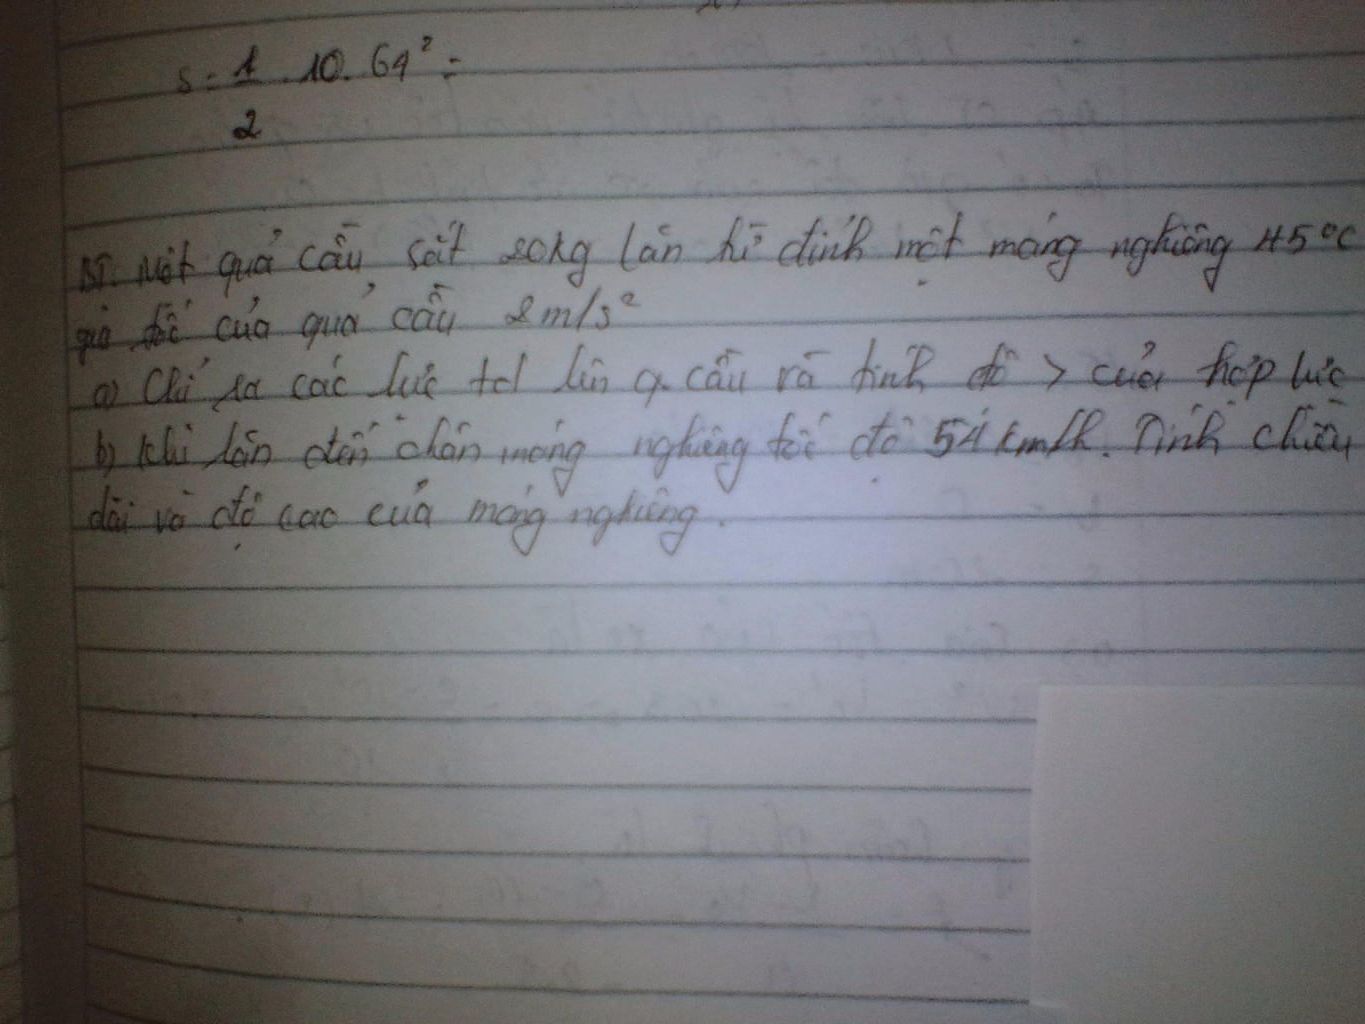 s = 1/2 . 10. 64² =
BT. Một quả cầu sắt 20kg lăn từ đỉnh một máng nghiêng 45°C
gia tốc của quả cầu 2m/s²
a) Chỉ ra các lực td lên q. cầu và tính độ > của hợp lực
b) Khi lăn đến chân máng nghiêng tốc độ 54 km/h. Tính chiều
dài và độ cao của máng nghiêng.